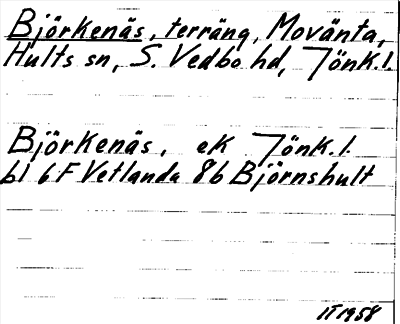 Björkenäs, terräng, Movänta,
Hults sn, S. Vedbo hd, Jönk.l.
Björkenäs, ek Jönk.l.
bl 6F Vetlanda 8b Björnshult
IT 1958